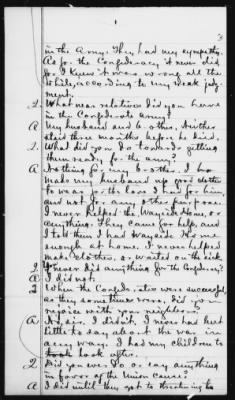 3
in the Army. They had my sympathy.
As for the Confederacy it never did
for I knew it was wrong all the
while, according to my weak judg-
ment.
Q What near relatives did you have
in the Confederate army?
A My husband and brother, brother
died three months before he died.
Q What did you do towards getting
them ready for the army?
A Nothing for my brother. I
make my husband clothes
to wear for the love I had for him
and not for any other purpose.
I never helped the Wayside Home, or
anything. They came for help, and
I told them I had Wayside Home
enough at home. I never helped
make clothes, or waited on the sick
I never did anything for the Confederacy.
Q
A I did not.
Q When the Confederates were successful,
as they sometimes were, did you
rejoice with your neighbors?
A No sir. I didn't. I never had but
little to say about the war in
any way. I had my children to
took look after.
Q Did you ever do or say anything
in favor of the Union cause?
A I did until they got to threatening to